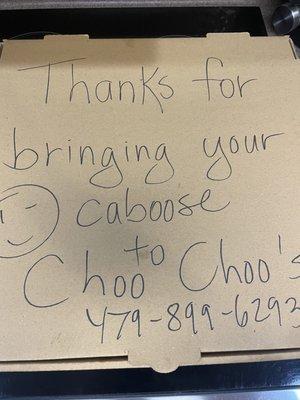 Thanks for
bringing your
caboose
to
Choo Choo's
479-899-6293